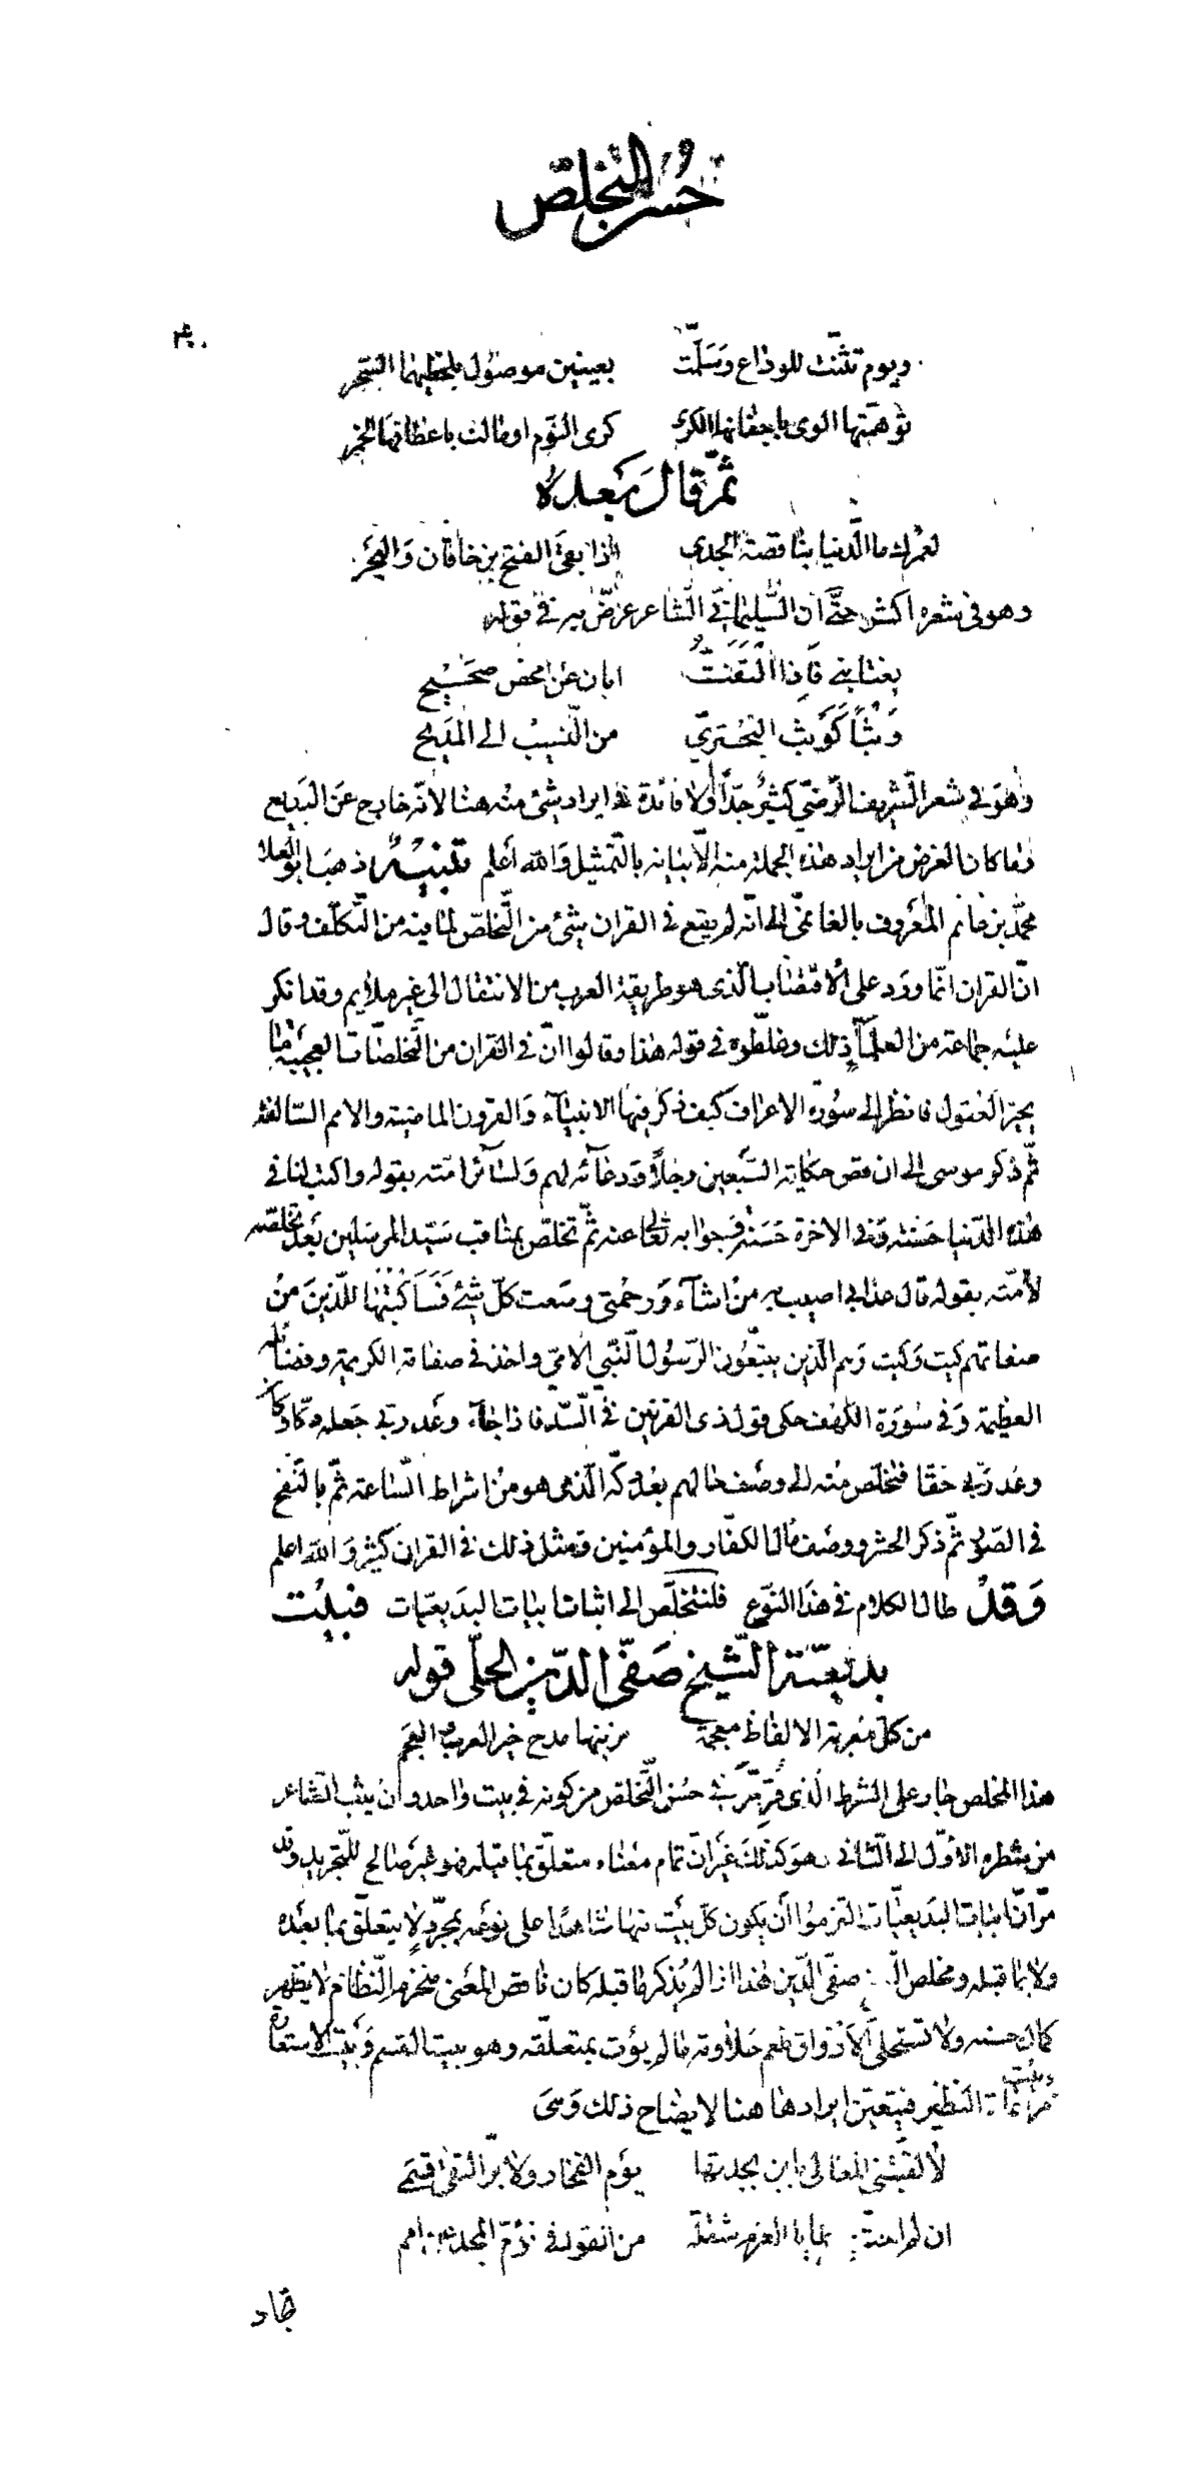 حُسن التخلّص
ويوم تثنّت للوداع وَسَلَّمت بعينين موصول بلحظيهما السّحر
توهّمتها الوى باجفانها الكرى كرى النّوم او مالت باعطافها الخمر
ثمّ قال بَعده
لعمرك ما الدّنيا بناقصة الجدى اذا بقى الفتح بن خاقان وَالبحر
وهو فى شعره اكثر حتّى ان السّليمانىّ الشاعر عرّض به فى قوله
يغتابنى فَاِذا الْتَقَت ابان عن محض صحيح
وَثْبًا كَوَثب البحترىّ من النّسيب الى المَديح
وَهُوَ فى شعر الشّريف الرّضىّ كثير جدّا وَلا فائدة فى ايراد شئ منه هنا لانّه خارج عَن البَديع
وَما كان الغرض من ايراد هذه الجملة منه الّا بيانه بالتّمثيل وَالله اَعلم تنبيه ذهب ابو العلا
محمّد بن غانم المَعروف بالغانمىّ الى انّه لم يقع فى القران شئ من التّخلّص لما فيه من التّكلّف وقال
انّ القران انّما ورَد على الاقتضاب الّذى هو طريقة العرب من الانتقال الى غير ملايم وقد انكر
عليه جماعة من العلمآء ذلك وغلّطوه فى قوله هذا وقالوا انّ فى القران من التّخلّصات العجيبة ما
يحيّر العُقول فانظر الى سُورة الاعراف كيف ذكر فيها الانبيآء وَالقرون الماضية والامم السّالفة
ثمّ ذكر موسى الى ان قص حكاية السّبعين رجلًا ودعآئه لهم وَلسآئر امّته بقوله واكتب لنا فى
هذه الدّنيا حَسَنة وَفى الاخرة حَسَنة وَجوابه تعالى عنه ثمّ تخلّص بمناقب سَيّد المرسَلين بَعد تخلّصه
لامّته بقوله قال عذابى اصيب به من اشآء وَرحمتى وسعت كلّ شئ فَسَاَكتُبُها للّذينَ مِنْ
صفاتهم كيت وَكيت وَهم الّذين يتّبعُون الرّسُول النّبىّ الامىّ واخذ فى صفاته الكريمة وفضائله
العظيمة وَفى سُورَة الكهف حكى قول ذى القرنين فى السّد فاذا جآء وَعد ربّى جَعله دكّا وكان
وعد رَبّى حَقّا فتخلّص منه الى وصف حالهم بعْد دَكّه الّذى هو من اشراط السّاعة ثمّ بالنّفخ
فى الصّور ثمّ ذكر الحشر ووصف مال الكفّار والمؤمنين وَمثل ذلك فى القران كثير وَالله اعلم
وَقدْ طال الكلام فى هَذا النّوع فلنتخلّص الى اثبات ابيات البَديعيّات فبيت
بديعيّة الشّيخ صَفىّ الدّين الحلّى قوله
من كلّ معربة الالفاظ معجمة يزينها مدح خير العرب والعجم
هذا المخلص جار على الشرط الّذى قُرّر فى حسْن التّخلّص من كونه فى بيت واحد وان يثب الشّاعر
من شطره الاوّل الى الثّانى وهو كذلك غير انّ تمام معناه متعلّق بما قبله فهو غير صالح للتّجريد وقد
مرّ انّ ابيات البَديعيّات التزموا اَن يكون كلّ بيت منها شاهدًا على نوعه بمجرّده لا يتعلّق بما بعده
ولا بما قبله ومخلص الـ صفىّ الدّين هذا اذا لم يُذكر ما قبله كان ناقص المَعنى منخرم النّظام لا يظهر
كمال حسنه ولا تستحلى الاَذواق طعم حَلاوته مالم يؤت بمتعلّقه وهو بيت القسم وَبَيت الاستعارة
وبيت مراعاة النّظير فيتعيّن ايرادها هنا لايضاح ذلك وَهىَ
لا لقّبتنى المعالى بابن بجدتها يوم الفخار ولا برّ التقى قسَمى
ان لم احثّ مطايا العزم مثقلة من القوافى تؤمّ المجد عن امم
تجاد